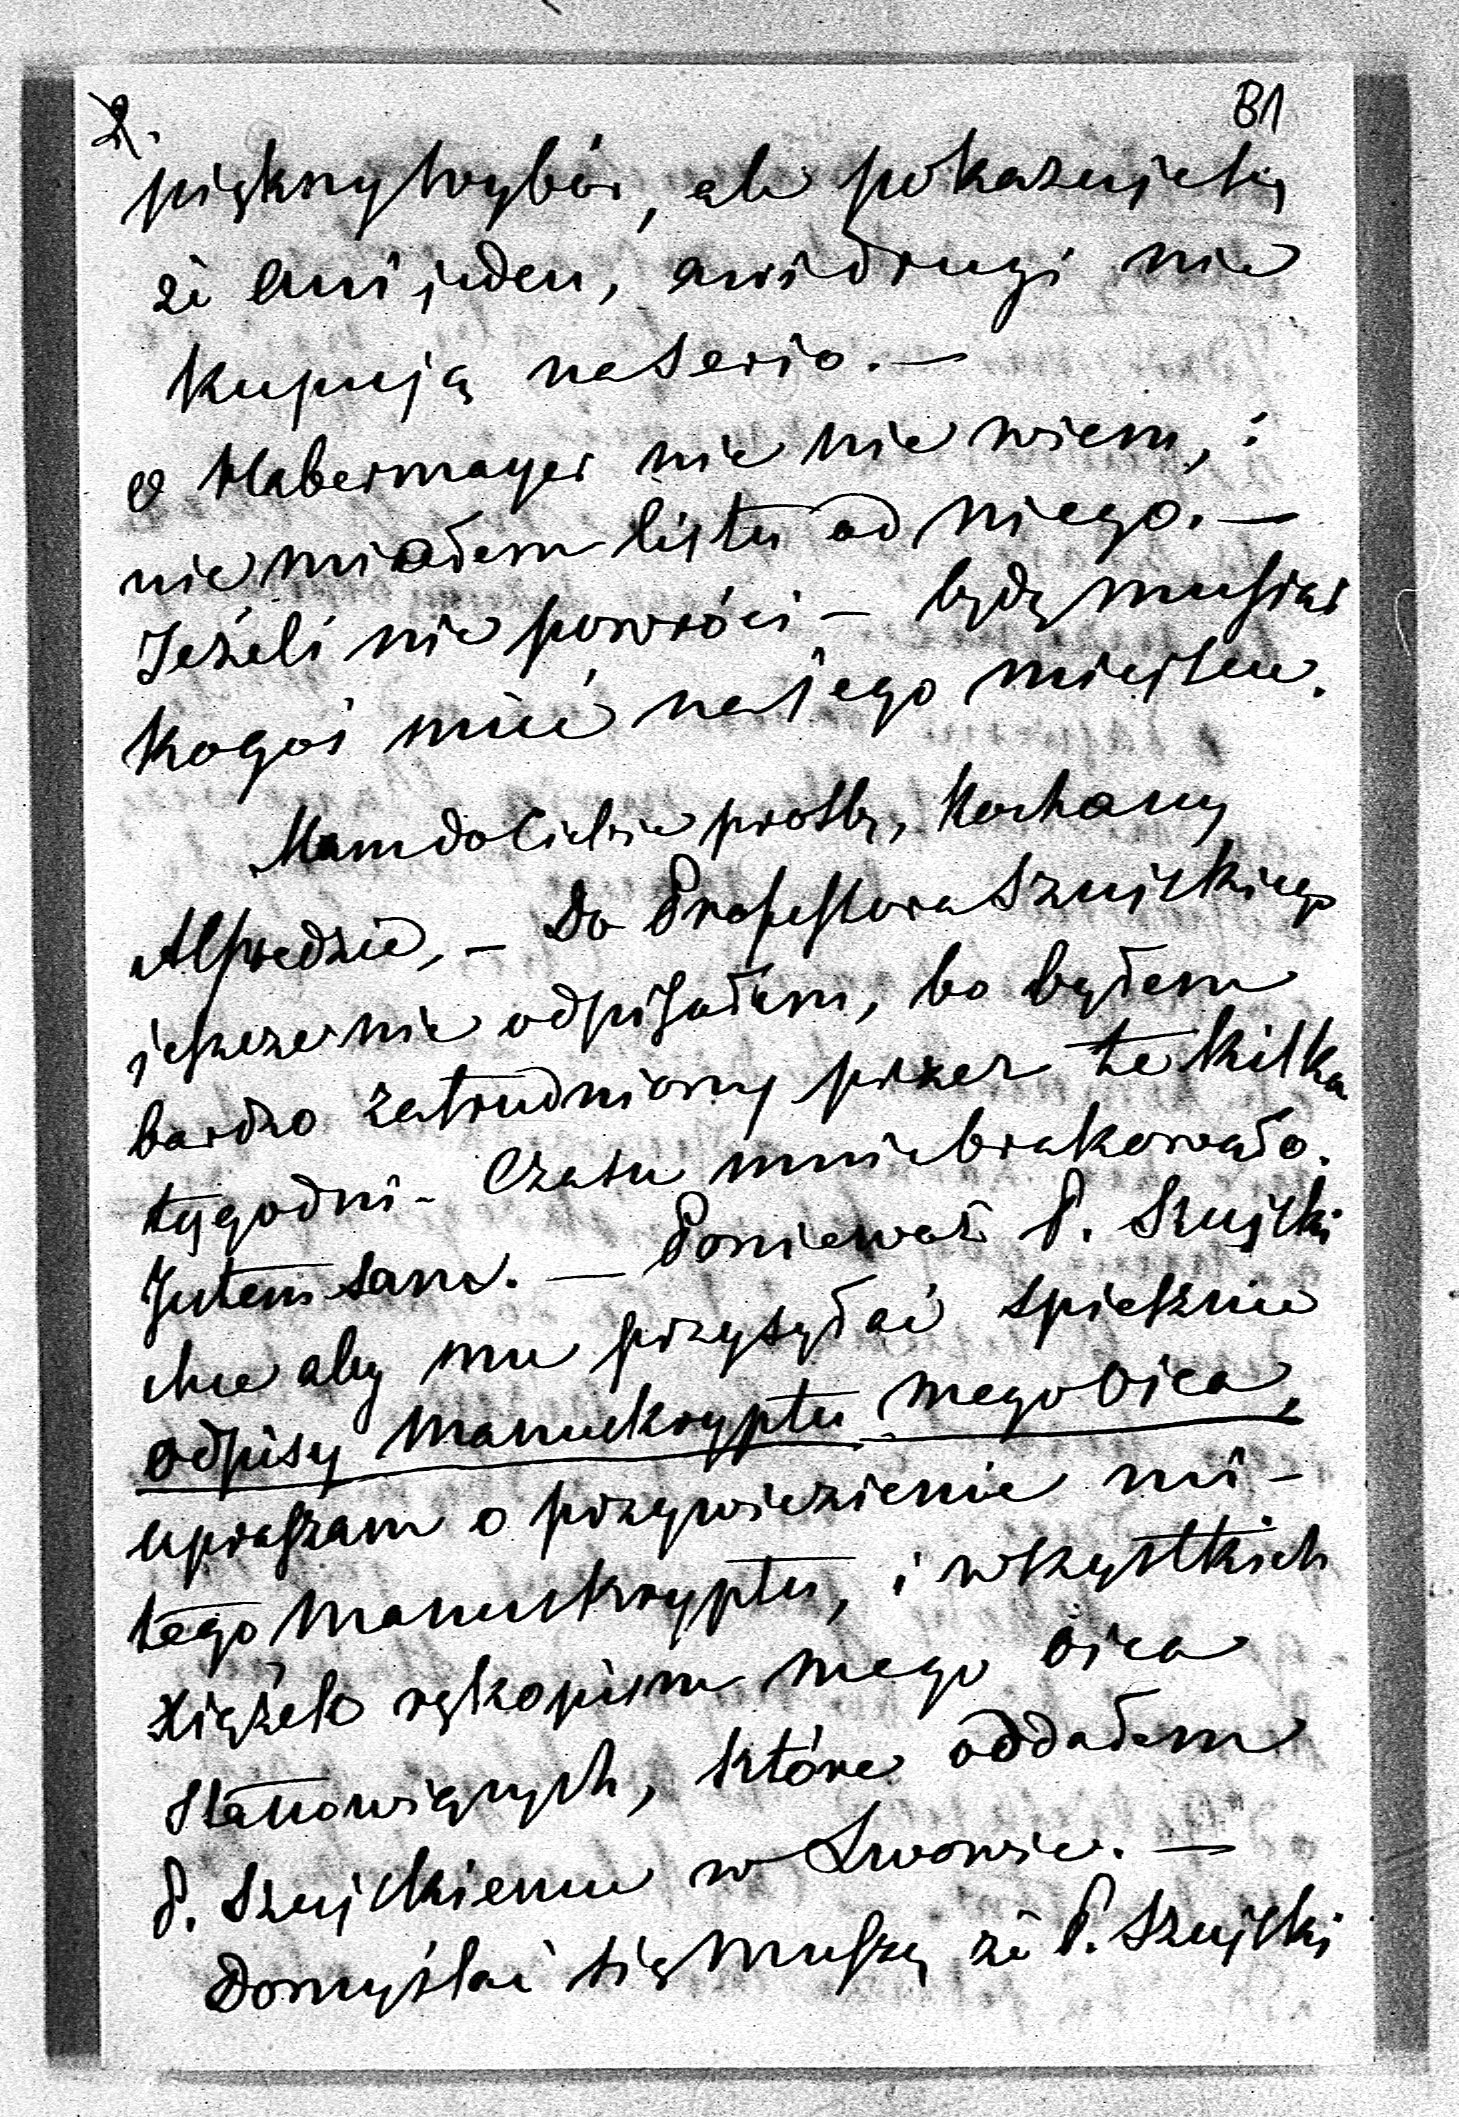 2.
B1
piękny wybór, ale pokazuje się
że ani jeden, ani drugi nie
kupują na serio. —
O Habermayer nic nie wiem, i
nie miałem listu od niego. —
Jeżeli nie powróci — będę musiał
kogoś mieć na jego miejscu.
Mam do Ciebie prośbę, Kochany
Alfredzie, — Do Professora Szujskiego
jeszcze nie odpisałem, bo byłem
bardzo zatrudniony przez te kilka
tygodni - Czasu mnie brakowało.
Jutem sam. — Ponieważ P. Szujski
chce aby mu przysyłać spiesznie
odpisy manuskryptu mego Oica,
upraszam o przywiezienie mi -
tego manuskryptu, i wszystkich
Xiążek rękopism mego Oica
stanowiących, które oddałem
P. Szujskiemu w Lwowie. —
Domyślać się muszę że P. Szujski